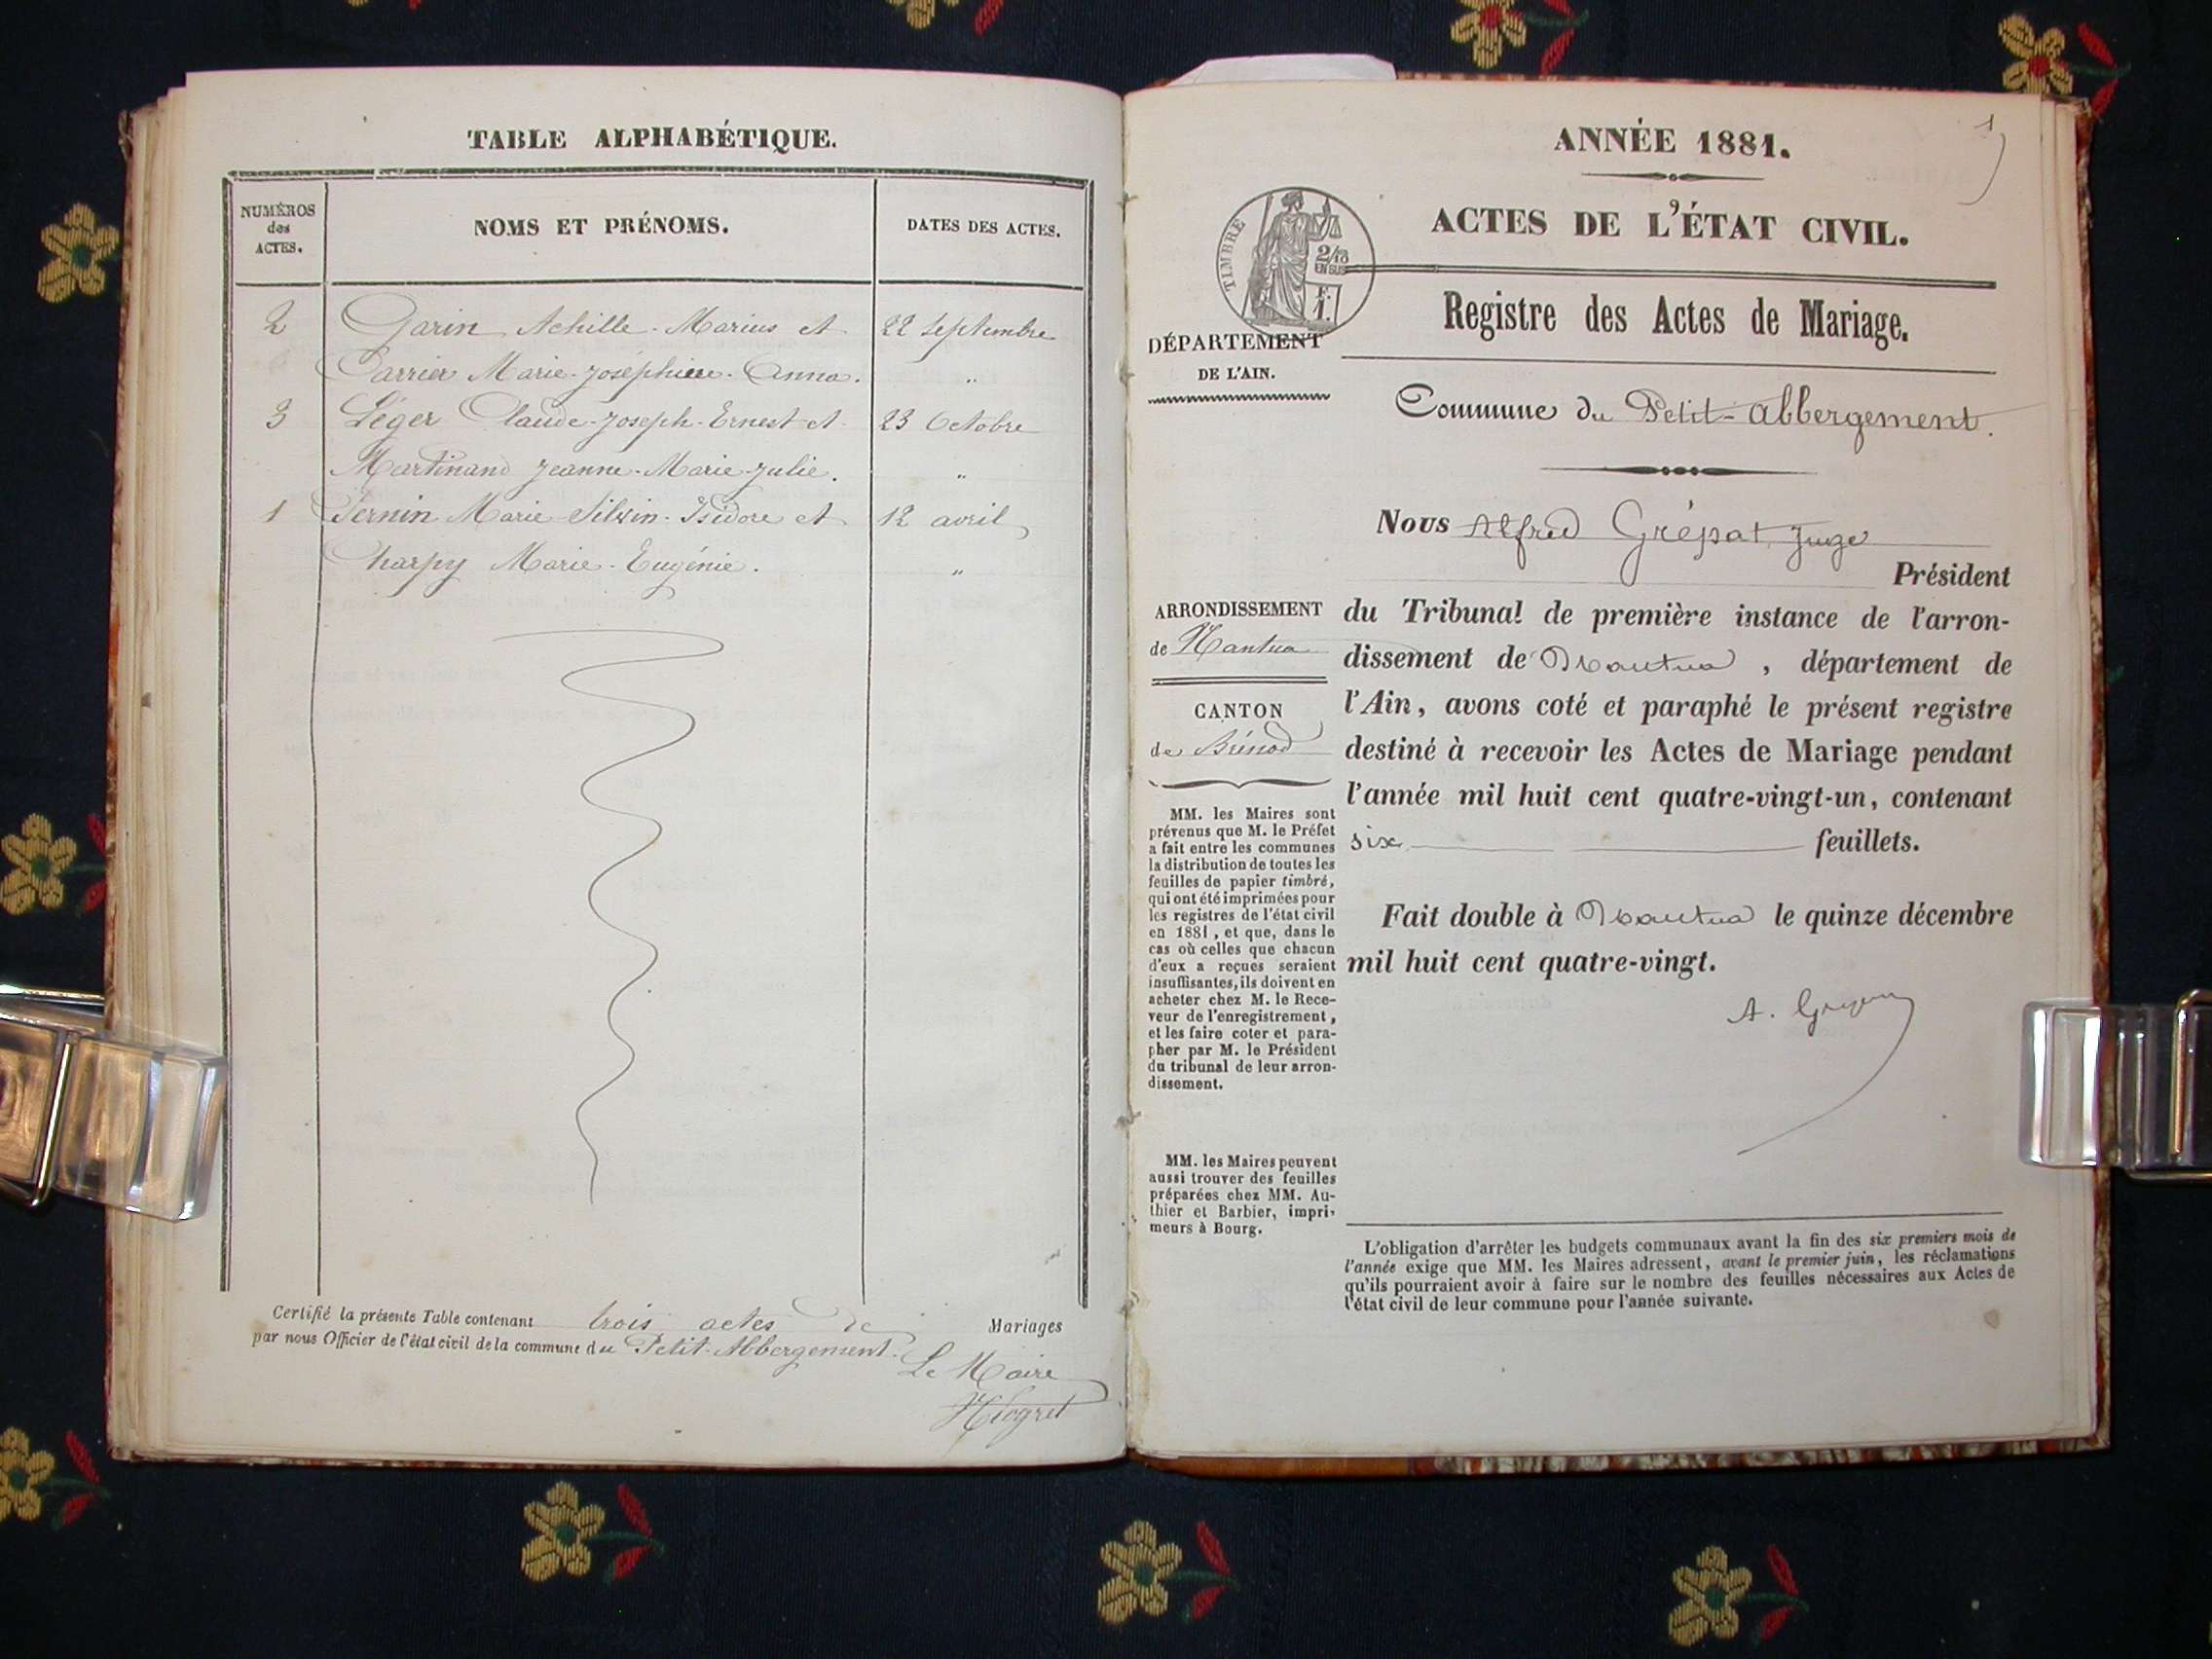 TABLE ALPHABÉTIQUE.
NUMÉROS
des
ACTES.
NOMS ET PRÉNOMS.
DATES DES ACTES.
2 Garin Achille-Marius et 22 Septembre
Carrier Marie-Joséphine-Anna. "
3 Léger Claude-Joseph-Ernest et 23 Octobre
Martinand Jeanne-Marie-Julie. "
1 Pernin Marie Silvin-Isidore et 12 avril
Charpy Marie-Eugénie. "
Certifié la présente Table contenant trois actes de Mariages
par nous Officier de l'état civil de la commune du Petit-Abbergement.
Le Maire
1
ANNÉE 1881.
ACTES DE L'ÉTAT CIVIL.
TIMBRE
2/10
EN SUS
F.
1.
Registre des Actes de Mariage.
DÉPARTEMENT
DE L'AIN.
Commune du Petit-abbergement.
Nous Alfred Grépat, Juge
Président
ARRONDISSEMENT
de Nantua
CANTON
de Brénod
du Tribunal de première instance de l'arron-
dissement de Nantua, département de
l'Ain, avons coté et paraphé le présent registre
destiné à recevoir les Actes de Mariage pendant
l'année mil huit cent quatre-vingt-un, contenant
six feuillets.
Fait double à Nantua le quinze décembre
mil huit cent quatre-vingt.
MM. les Maires sont
prévenus que M. le Préfet
a fait entre les communes
la distribution de toutes les
feuilles de papier timbré,
qui ont été imprimées pour
les registres de l'état civil
en 1881, et que, dans le
cas où celles que chacun
d'eux a reçues seraient
insuffisantes, ils doivent en
acheter chez M. le Rece-
veur de l'enregistrement,
et les faire coter et para-
pher par M. le Président
du tribunal de leur arron-
dissement.
MM. les Maires peuvent
aussi trouver des feuilles
préparées chez MM. Au-
thier et Barbier, impri-
meurs à Bourg.
L'obligation d'arrêter les budgets communaux avant la fin des six premiers mois de
l'année exige que MM. les Maires adressent, avant le premier juin, les réclamations
qu'ils pourraient avoir à faire sur le nombre des feuilles nécessaires aux Actes de
l'état civil de leur commune pour l'année suivante.